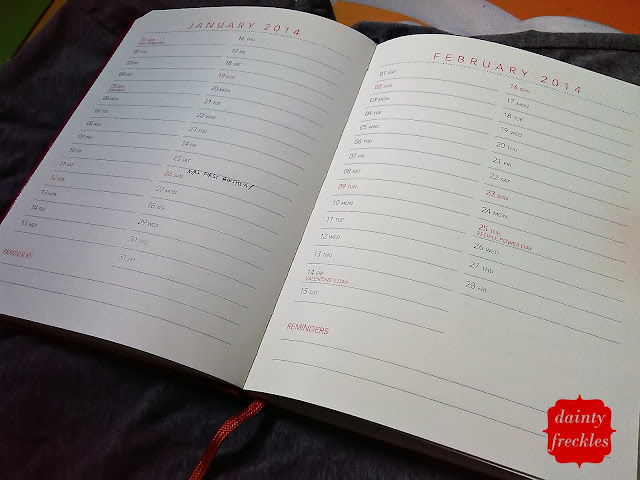 JANUARY 2014
01 WED
NEW YEAR'S DAY
02 THU
03 FRI
04 SAT
05 SUN
EPIPHANY
06 MON
07 TUE
08 WED
09 THU
10 FRI
11 SAT
12 SUN
13 MON
14 TUE
15 WED
16 THU
17 FRI
18 SAT
19 SUN
20 MON
21 TUE
22 WED
23 THU
24 FRI
25 SAT
26 SUN FIRST BIRTHDAY
27 MON
28 TUE
29 WED
30 THU
31 FRI
REMINDERS
FEBRUARY 2014
01 SAT
02 SUN
03 MON
04 TUE
05 WED
06 THU
07 FRI
08 SAT
09 SUN
10 MON
11 TUE
12 WED
13 THU
14 FRI
VALENTINE'S DAY
15 SAT
16 SUN
17 MON
18 TUE
19 WED
20 THU
21 FRI
22 SAT
23 SUN
24 MON
25 TUE
PEOPLE POWER DAY
26 WED
27 THU
28 FRI
REMINDERS
dainty
freckles